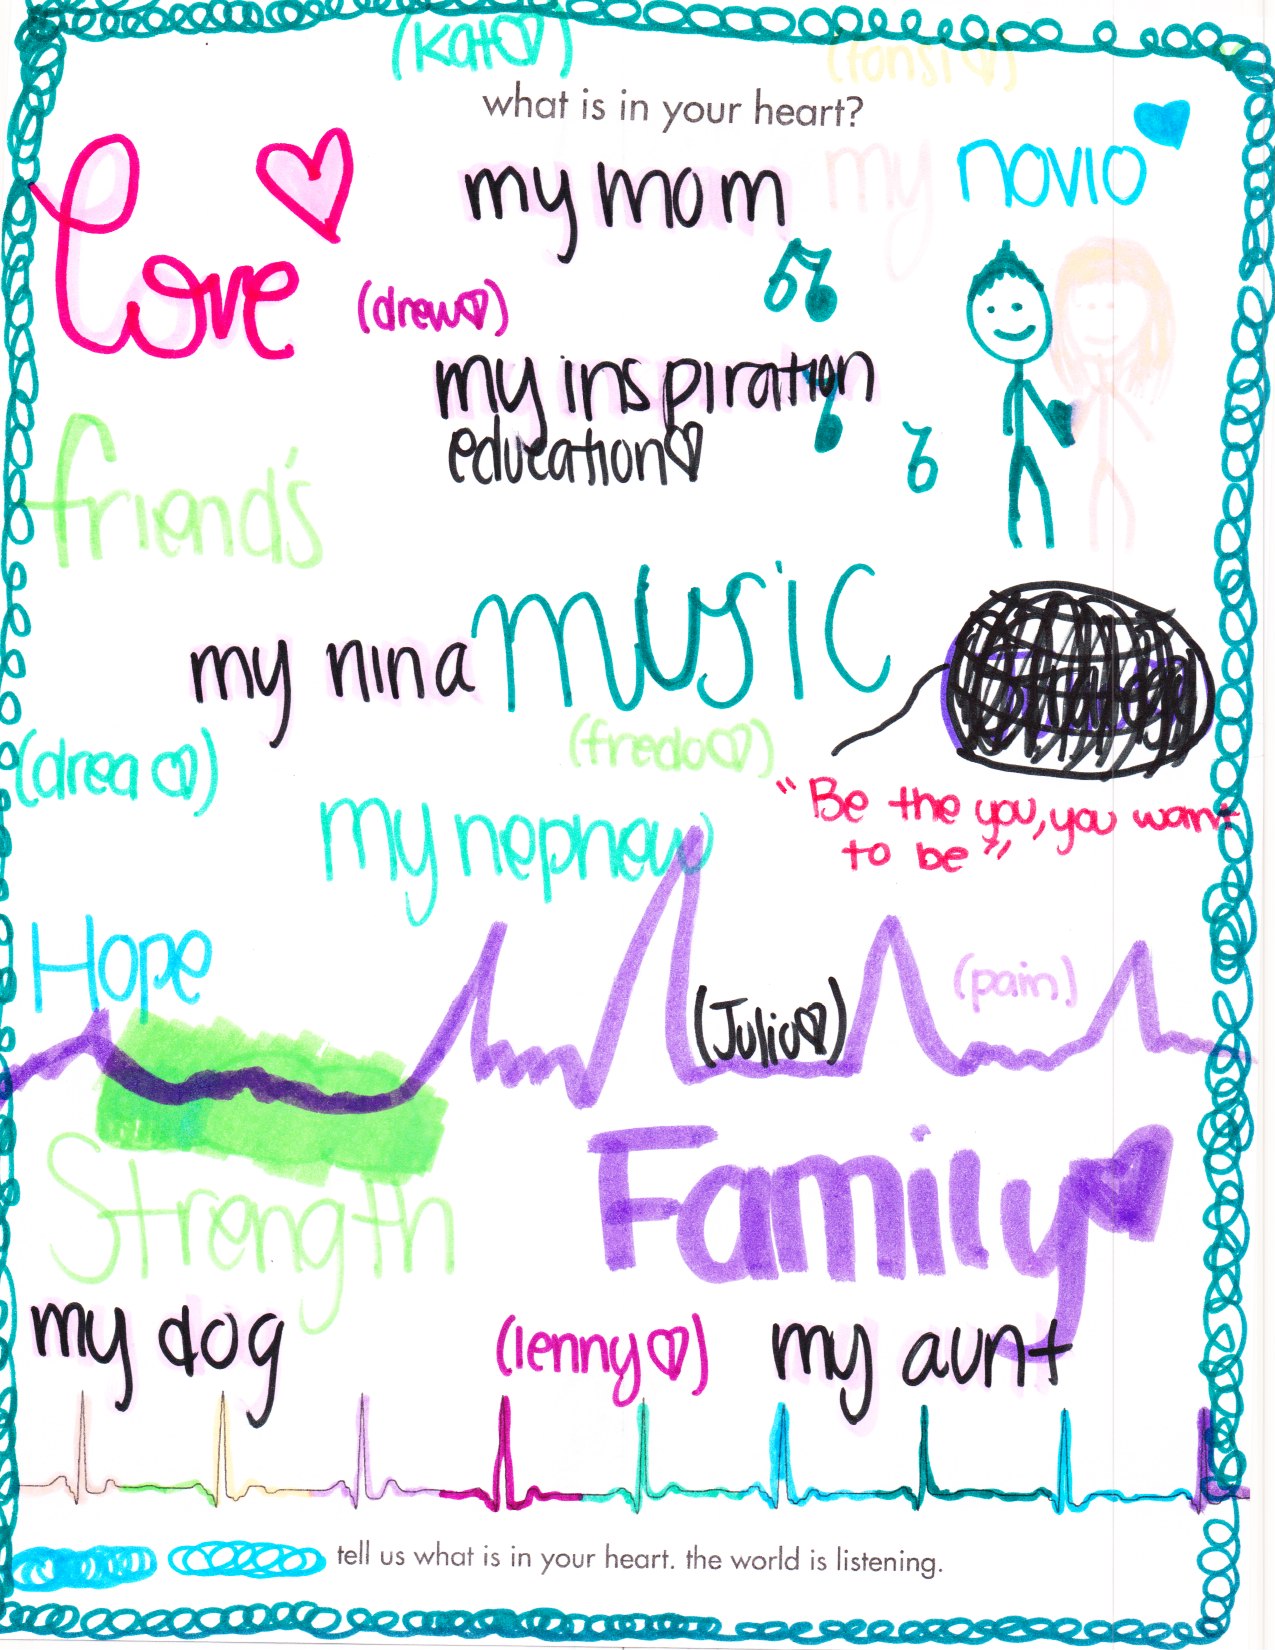 (Kat♡)
(fonsi♡)
what is in your heart?
Love
my mom
my novio
(drew♡)
my inspiration
education♡
friend's
music
my nina
(drea♡)
(fredo♡)
"Be the you, you want
to be"
my nephew
Hope
(pain)
(Julio♡)
Strength
Family
my dog
(lenny♡)
my aunt
tell us what is in your heart. the world is listening.